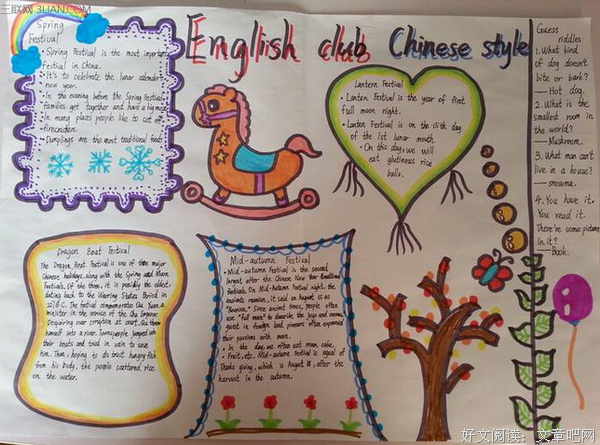 三联网 3LIAN.COM
English club Chinese style
Spring
Festival
• Spring Festival is the most important
festival in China.
• It's to celebrate the lunar calendar's
new year.
• In the evening before the Spring Festival
families get together and have a big meal
• In many places people like to set off
firecrackers.
Dumplings are the most traditional food.
Lantern Festival
• Lantern Festival is the year of first
full moon night.
• Lantern Festival is on the 15th day
of the 1st lunar month.
• On this day, we will
eat glutinous rice
balls.
Guess
riddles
1. What kind
of dog doesn't
bite or bark?
— Hot dog.
2. What is the
smallest room in
the world?
— Mushroom.
3. What man can't
live in a house?
— snowma.
4. You have it,
You read it.
There're some picture
in it?
— Book.
Dragon Boat Festival
The Dragon Boat Festival is one of three major
Chinese holidays, along with the Spring and Moon
Festivals. Of the three, it is possibly the oldest,
dating back to the Warring States Period in
227 B.C. The festival commemorates Qu Yuan, a
minister in the service of the Chu Emperor.
Despairing over corruption at court, Qu threw
himself into a river. Townspeople jumped into
their boats and tried in vain to save
him. Then, hoping to distract hungry fish
from his body, the people scattered rice
on the water.
Mid-autumn Festival
• Mid-autumn Festival is the second
largest after the Chinese New Year traditional
festivals. On Mid-Autumn Festival night, the
ancients reunion, it said on August, is as
"Reunion." Since ancient times, people often
use "full moon" to describe the joys and sorrows,
guest in foreign land pioneers often expressed
their passions with moon.
• In the day, we often eat moon cake.
• Fruit, etc. Mid-autumn Festival is equal of
Thanks giving, which is August 15, after the
harvest in the autumn.
好文阅读：文章吧网